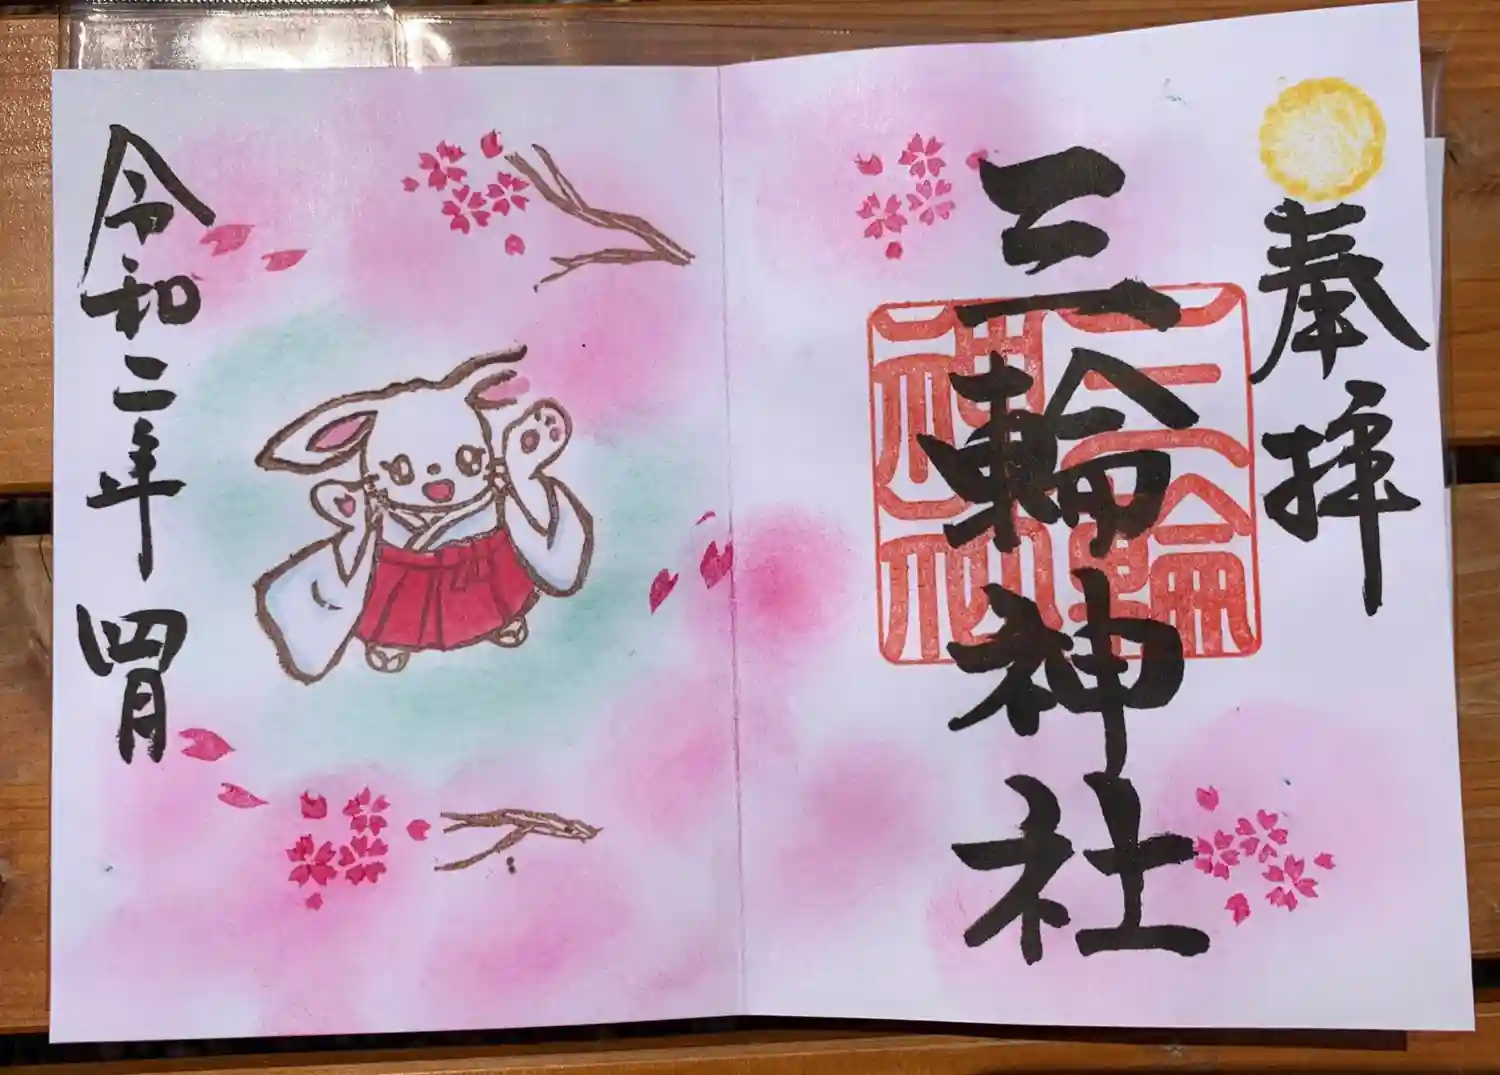 奉拝
三輪神社
三輪
神社
令和二年四月